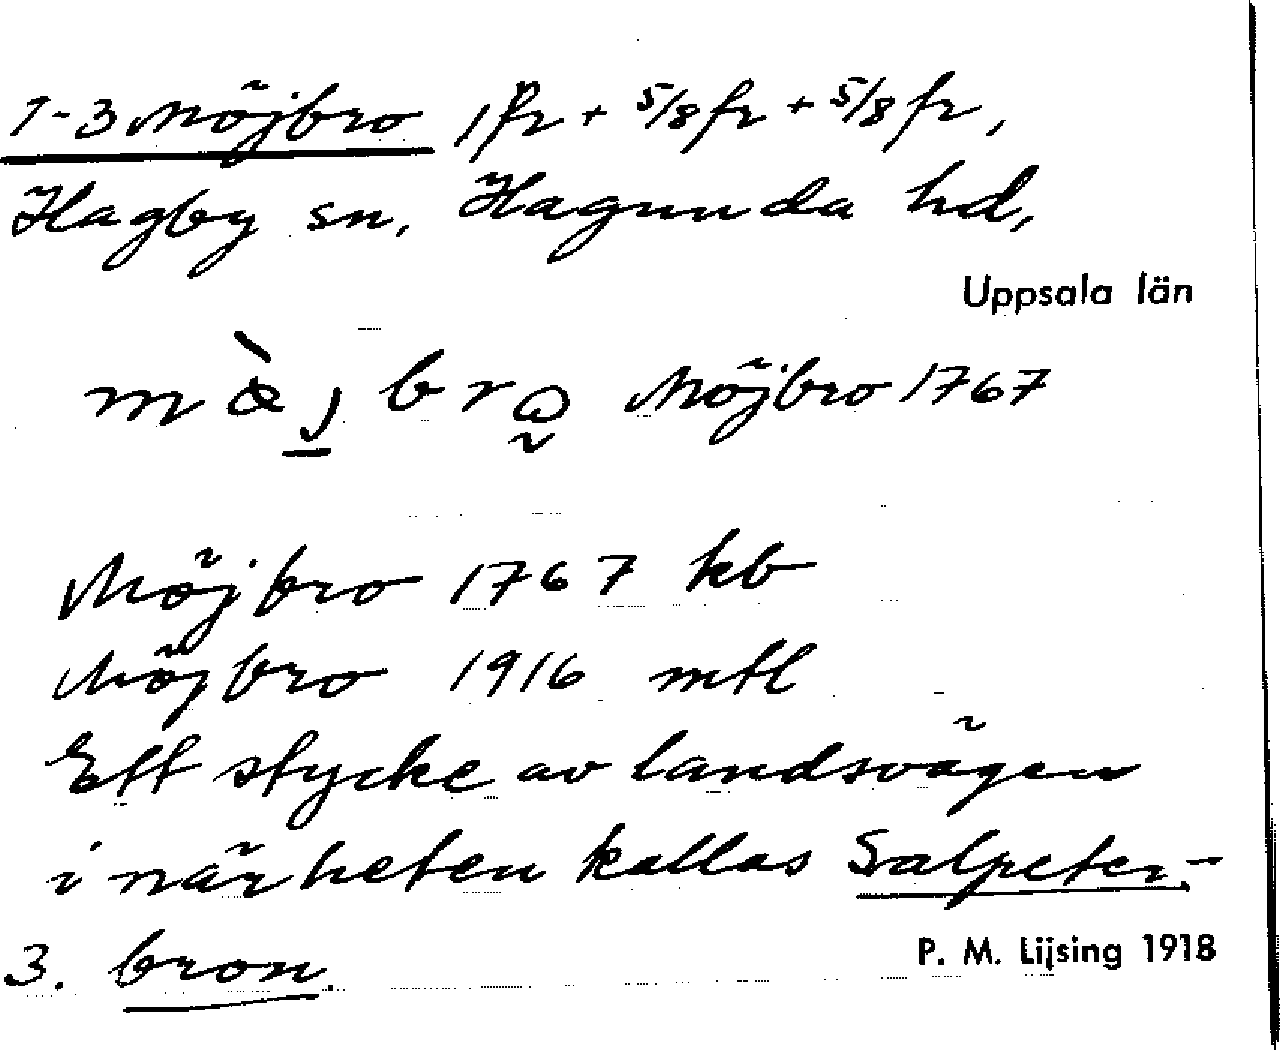 1-3 Möjbro 1 fr + 5/8 fr + 5/8 fr,
Hagby sn, Hagunda hd,
Uppsala län
Möjbro 1767
Möjbro 1767 kb
Möjbro 1916 mtl
Ett stycke av landsvägen
i närheten kallas Salpeter-
3. bron.
P. M. Lijsing 1918